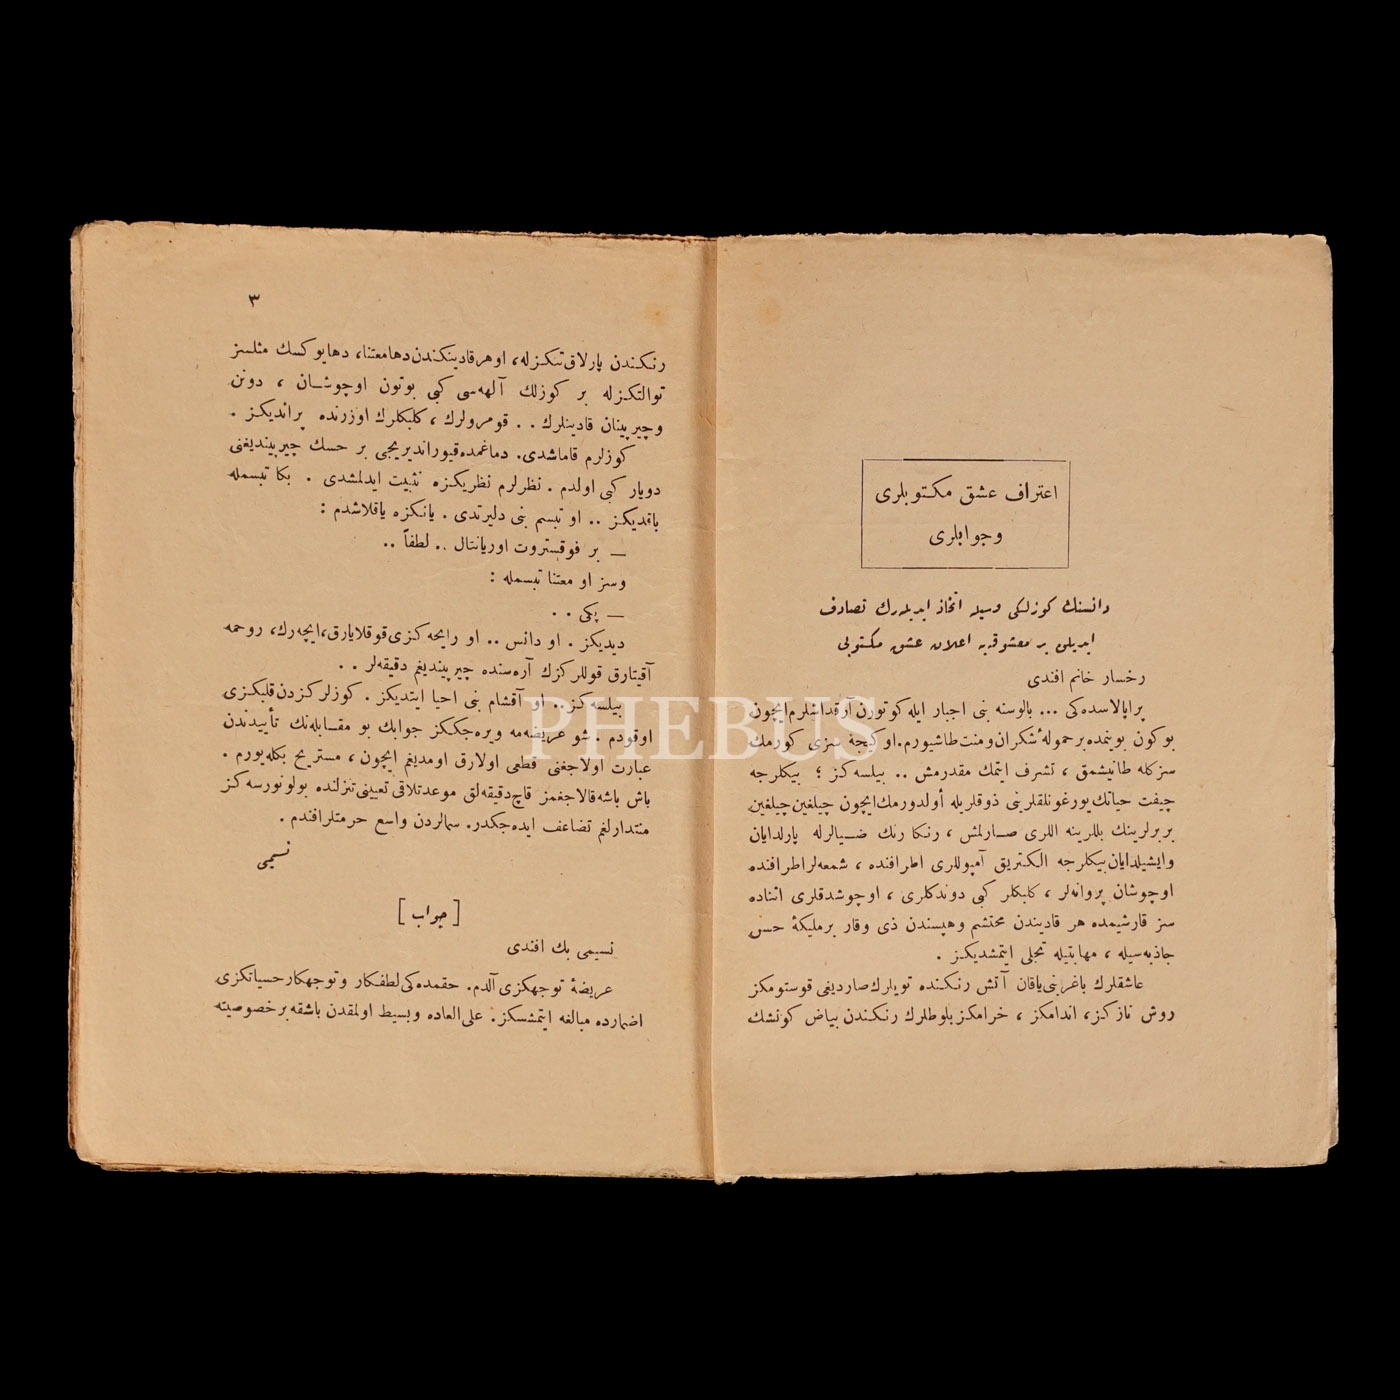 اعتراف عشق مكتوبلرى
وجوابلرى
دانسنك كوزلكى وسيله اتخاذ ايديله‌رك تصادف
ايديلن بر معشوقه‌يه اعلان عشق مكتوبى
رخسار خانم افندى
پراپالاسده‌كى ... بالوسنه بنى اجبار ايله كوتورن آرقداشلرم ايچون
بوكون بوينمده برحمولهٔ شكران ومنت طاشيورم. او كيجه سزى كورمك
سزكله طانيشمق ، تشرف ايتمك مقدرمش .. بيلسه كز ؛ بيكلرجه
چيفت حياتك يورغونلقلرينى ذوقلريله أولدورمك ايچون چيلغين چيلغين
بربرلرينك بللرينه اللرى صارلمش ، رنكا رنك ضيالرله پارلدايان
وايشيلدايان بيكلرجه الكتريق آمپوللرى اطرافنده ، شمعه‌لر اطرافنده
اوچوشان پروانه‌لر ، كلبكلر كبى دوندكلرى ، اوچوشدقلرى اثناده
سز قارشيمده هر قاديندن محتشم وهپسندن ذى وقار برمليكهٔ حسن
جاذبه‌سيله ، مهابتيله تجلى ايتمشديكز .
عاشقلرك باغرينى ياقان آتش رنكنده توپلرك صارديغى قوستومكز
روش نازكز، اندامكز ، خرامكز بلوطلرك رنكندن بياض كونشك
٣
رنكندن پارلاق تنكزله، اوهرقادينكندن دها معتنا، دهايوكسك مثلسز
توالتكزله بر كوزلك آلهه‌سى كبى بوتون اوچوشان ، دونن
وچيرپينان قادينلرك . . قومرولرك ، كلبكلرك اوزرنده پرانديكز .
كوزلرم قاماشدى. دماغمده قيورانديريجى بر حسك چيرپينديغنى
دويار كبى اولدم . نظرلرم نظريكزه تثبيت ايدلمشدى . بكا تبسمله
باقديكز .. او تبسم بنى دليرتدى . يانكزه ياقلاشدم :
— بر فوقستروت اوريانتال .. لطفاً ..
وسز او معتنا تبسمله :
— پكى . .
ديديكز . او دانس .. او رايحه كزى قوقلايارق، ايچه‌رك، روحمه
آقيتارق قوللركزك آره‌سنده چيرپينديغم دقيقه‌لر . .
بيلسه كز.. او آقشام بنى احيا ايتديكز . كوزلركزدن قلبكزى
اوقودم . شو عريضه‌مه ويره‌جككز جوابك بو مقابله‌نك تأييدندن
عبارت اولاجغنى قطعى اولارق اومديغم ايچون ، مستريح بكله‌يورم .
باش باشه قالاجغمز قاچ دقيقه‌لق موعد تلاقى تعيينى تنزلنده بولونورسه كز
منتدارلغم تضاعف ايده‌جكدر. سمالردن واسع حرمتلر افندم .
نسيمى
[ جواب ]
نسيمى بك افندى
عريضهٔ توجهكزى آلدم. حقمده‌كى لطفكار وتوجهكار حسياتكزى
اضمارده مبالغه ايتمشسكز. على العاده وبسيط اولمقدن باشقه بر خصوصيته
PHEBUS